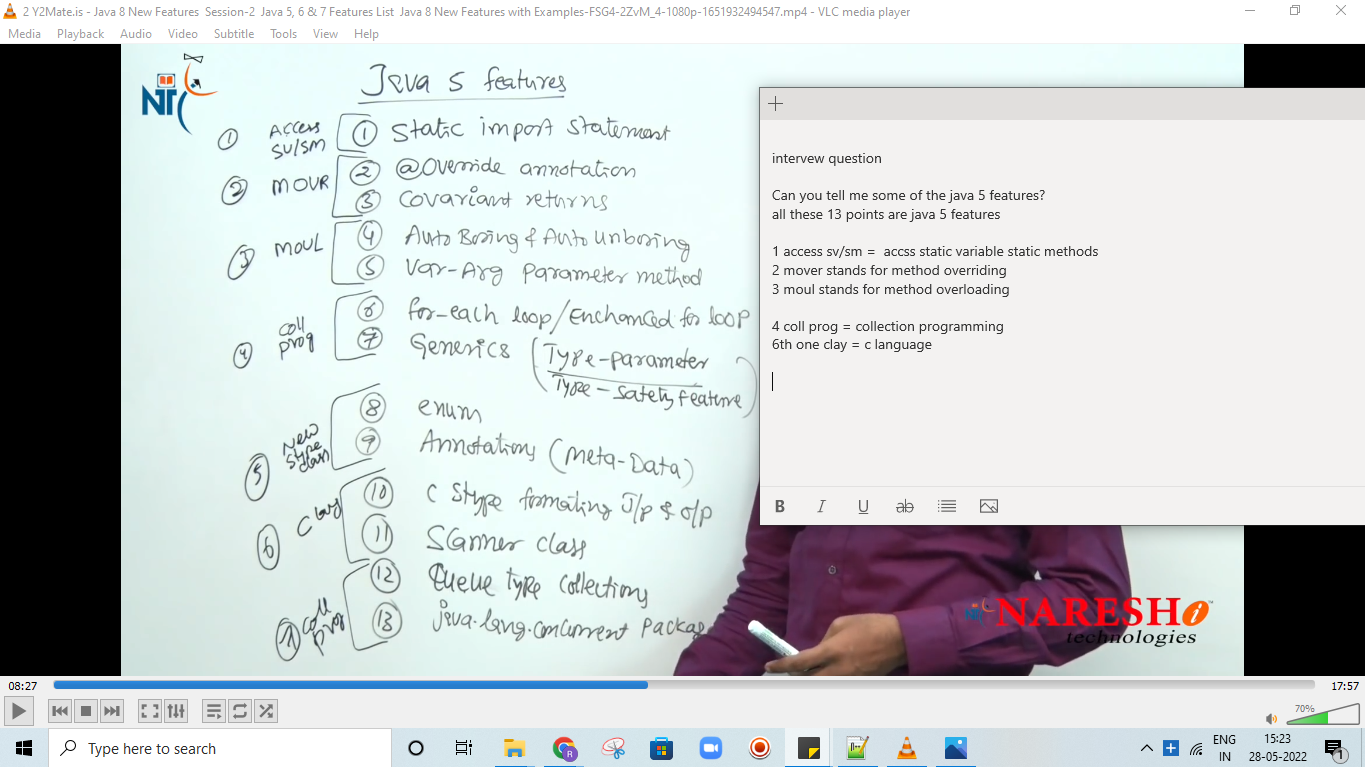 2 Y2Mate.is - Java 8 New Features Session-2 Java 5, 6 & 7 Features List Java 8 New Features with Examples-FSG4-2ZvM_4-1080p-1651932494547.mp4 - VLC media player
Media Playback Audio Video Subtitle Tools View Help
NT
Java 5 features
① Access SV/SM
① Static import statement
② MOVR
② @Override annotation
③ Covariant returns
③ MOUL
④ Auto Boxing & Auto Unboxing
⑤ Var-Arg Parameter method
④ coll prog
⑥ for-each loop/Enchanced for loop
⑦ Generics (Type-parameter
Type-Safety Feature)
⑤ New Stype class
⑧ enum
⑨ Annotations (Meta-Data)
⑥ C lang
⑩ C Stype formating I/p & o/p
⑪ Scanner class
⑦ coll prog
⑫ Queue type collections
⑬ java.lang.concurrent Package
intervew question
Can you tell me some of the java 5 features?
all these 13 points are java 5 features
1 access sv/sm = accss static variable static methods
2 mover stands for method overriding
3 moul stands for method overloading
4 coll prog = collection programming
6th one clay = c language
B I U ab
NARESH i
technologies
08:27
17:57
70%
Type here to search
R
ENG
IN
15:23
28-05-2022
1